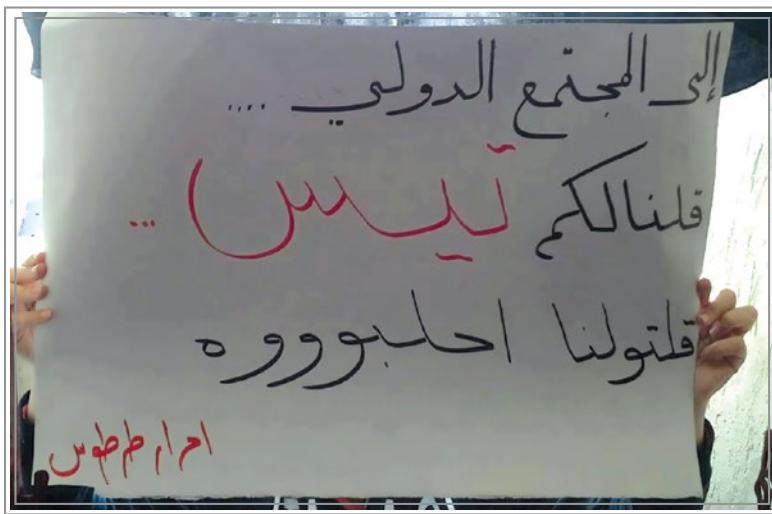 إلى المجتمع الدولي ....
قلنالكم تيس ...
قلتولنا احلبوووه
احرار طرطوس